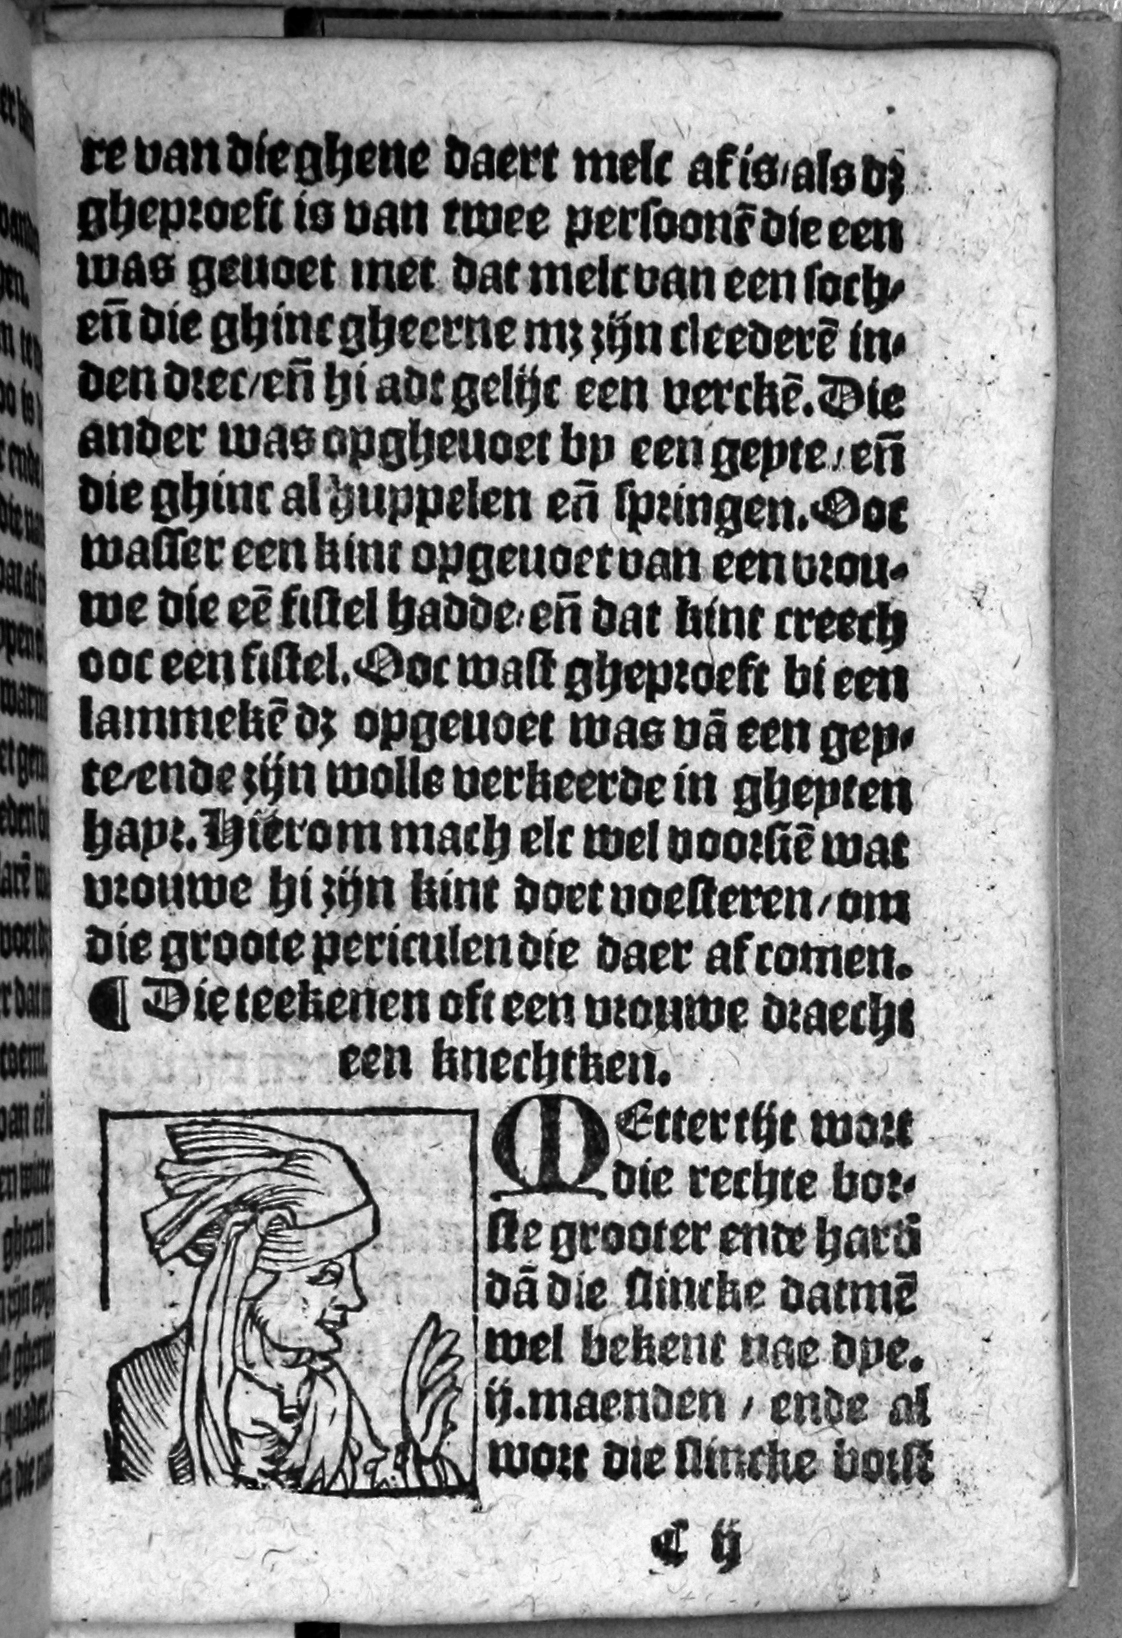 re van die ghene daert melc af is/als dꝫ
gheproeft is van twee persoonē die een
was geuoet met dat melc van een soch/
eñ die ghinc gheerne mꝫ zijn cleederē in/
den drec/eñ hi adt gelijc een verckē. Die
ander was opgheuoet by een geyte/eñ
die ghinc al huppelen eñ springen. Ooc
wasser een kint opgeuoet van een vrou/
we die eē fistel hadde/eñ dat kint creech
ooc een fistel. Ooc wast gheproeft bi een
lammekē dꝫ opgeuoet was vā een gey/
te/ende zijn wolle verkeerde in gheyten
hayr. Hierom mach elc wel voorsiē wat
vrouwe hi zijn kint doet voesteren/om
die groote periculen die daer af comen.
¶ Die teekenen oft een vrouwe draecht
een knechtken.
MEtter tijt wort
die rechte bor/
ste grooter ende hardū
dā die slincke datmē
wel bekent nae dye.
ij.maenden / ende al
wort die slincke borst
C ij